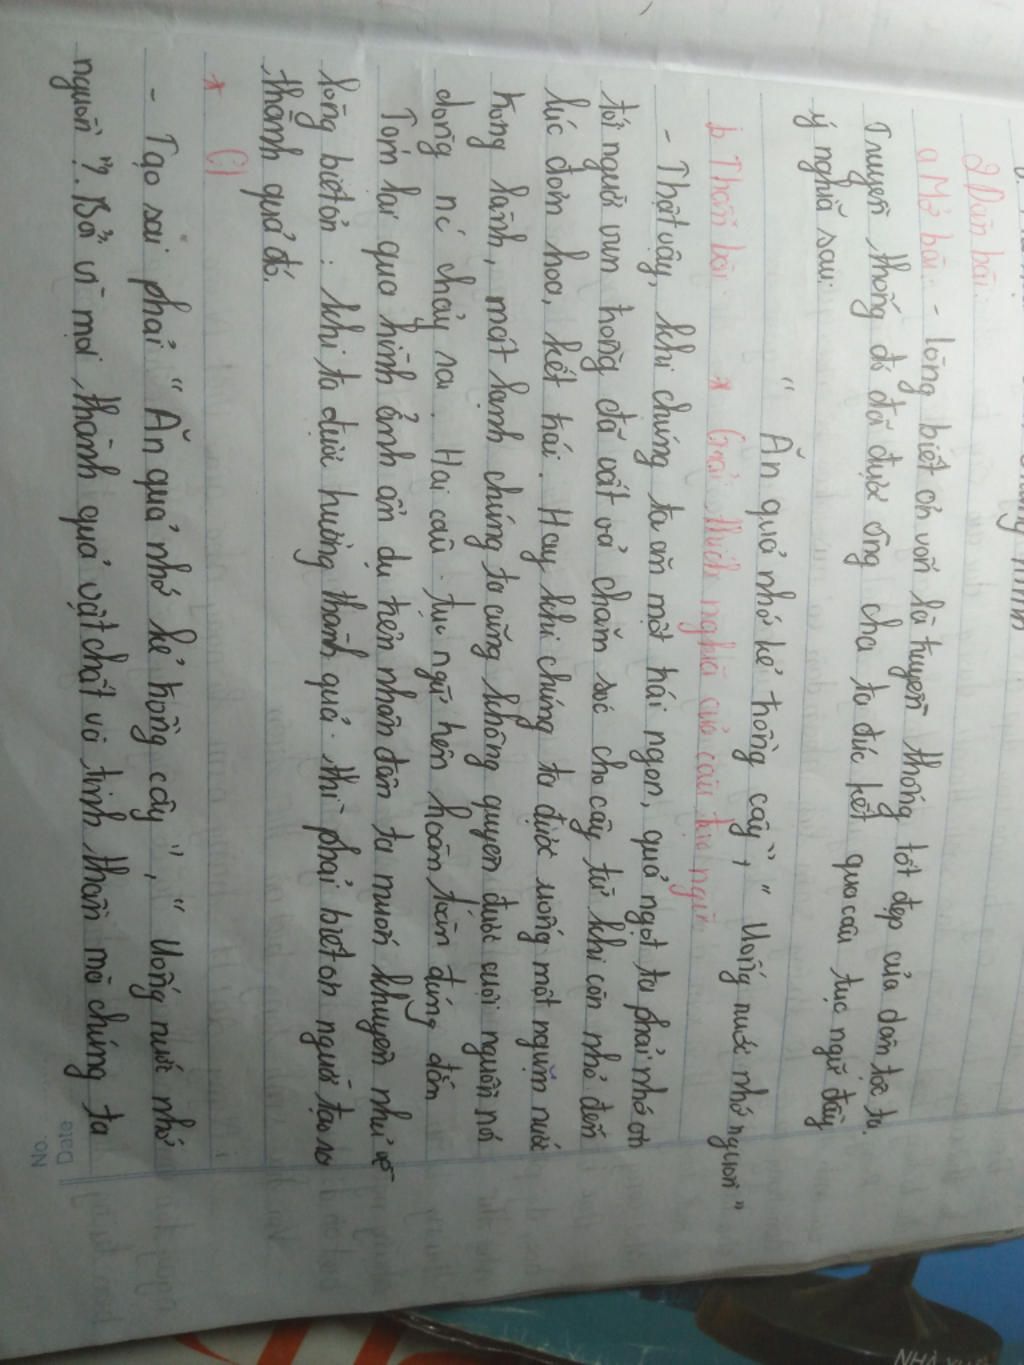 2 Dàn bài:
a Mở bài: - lòng biết ơn vốn là truyền thống tốt đẹp của dân tộc ta.
Truyền thống đó đã được ông cha ta đúc kết qua câu tục ngữ đầy
ý nghĩa sau:
" Ăn quả nhớ kẻ trồng cây", " Uống nước nhớ nguồn"
b Thân bài: * Giải thích nghĩa của câu tục ngữ
- Thật vậy, khi chúng ta ăn một trái ngon, quả ngọt ta phải nhớ ơn
tới người vun trồng đã vất vả chăm sóc cho cây từ khi còn nhỏ đến
lúc đơm hoa, kết trái. Hay khi chúng ta được uống một ngụm nước
trong lành, mát lạnh chúng ta cũng không quyên được cuội nguồn nới
dòng nó chảy ra. Hai câu tục ngữ trên hoàn toàn đúng đắn
Tóm lại qua hình ảnh ẩn dụ trên nhân dân ta muốn khuyên nhủ về
lòng biết ơn: khi ta được hưởng thành quả thì phải biết ơn người tạo ra
thành quả đó.
* C)
- Tạo sai phải " Ăn quả nhớ kẻ trồng cây", " Uống nước nhớ
nguồn"?. Bởi vì mọi thành quả vật chất và tinh thần mà chúng ta
Date
No.